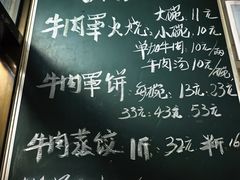 大碗:11元
牛肉罩火烧:小碗:10元
单切牛肉:10元
牛肉汤 10元/碗
牛肉罩饼:每碗:13元.23元
33元.43元.53元
牛肉蒸饺 1斤:32元 半斤 16